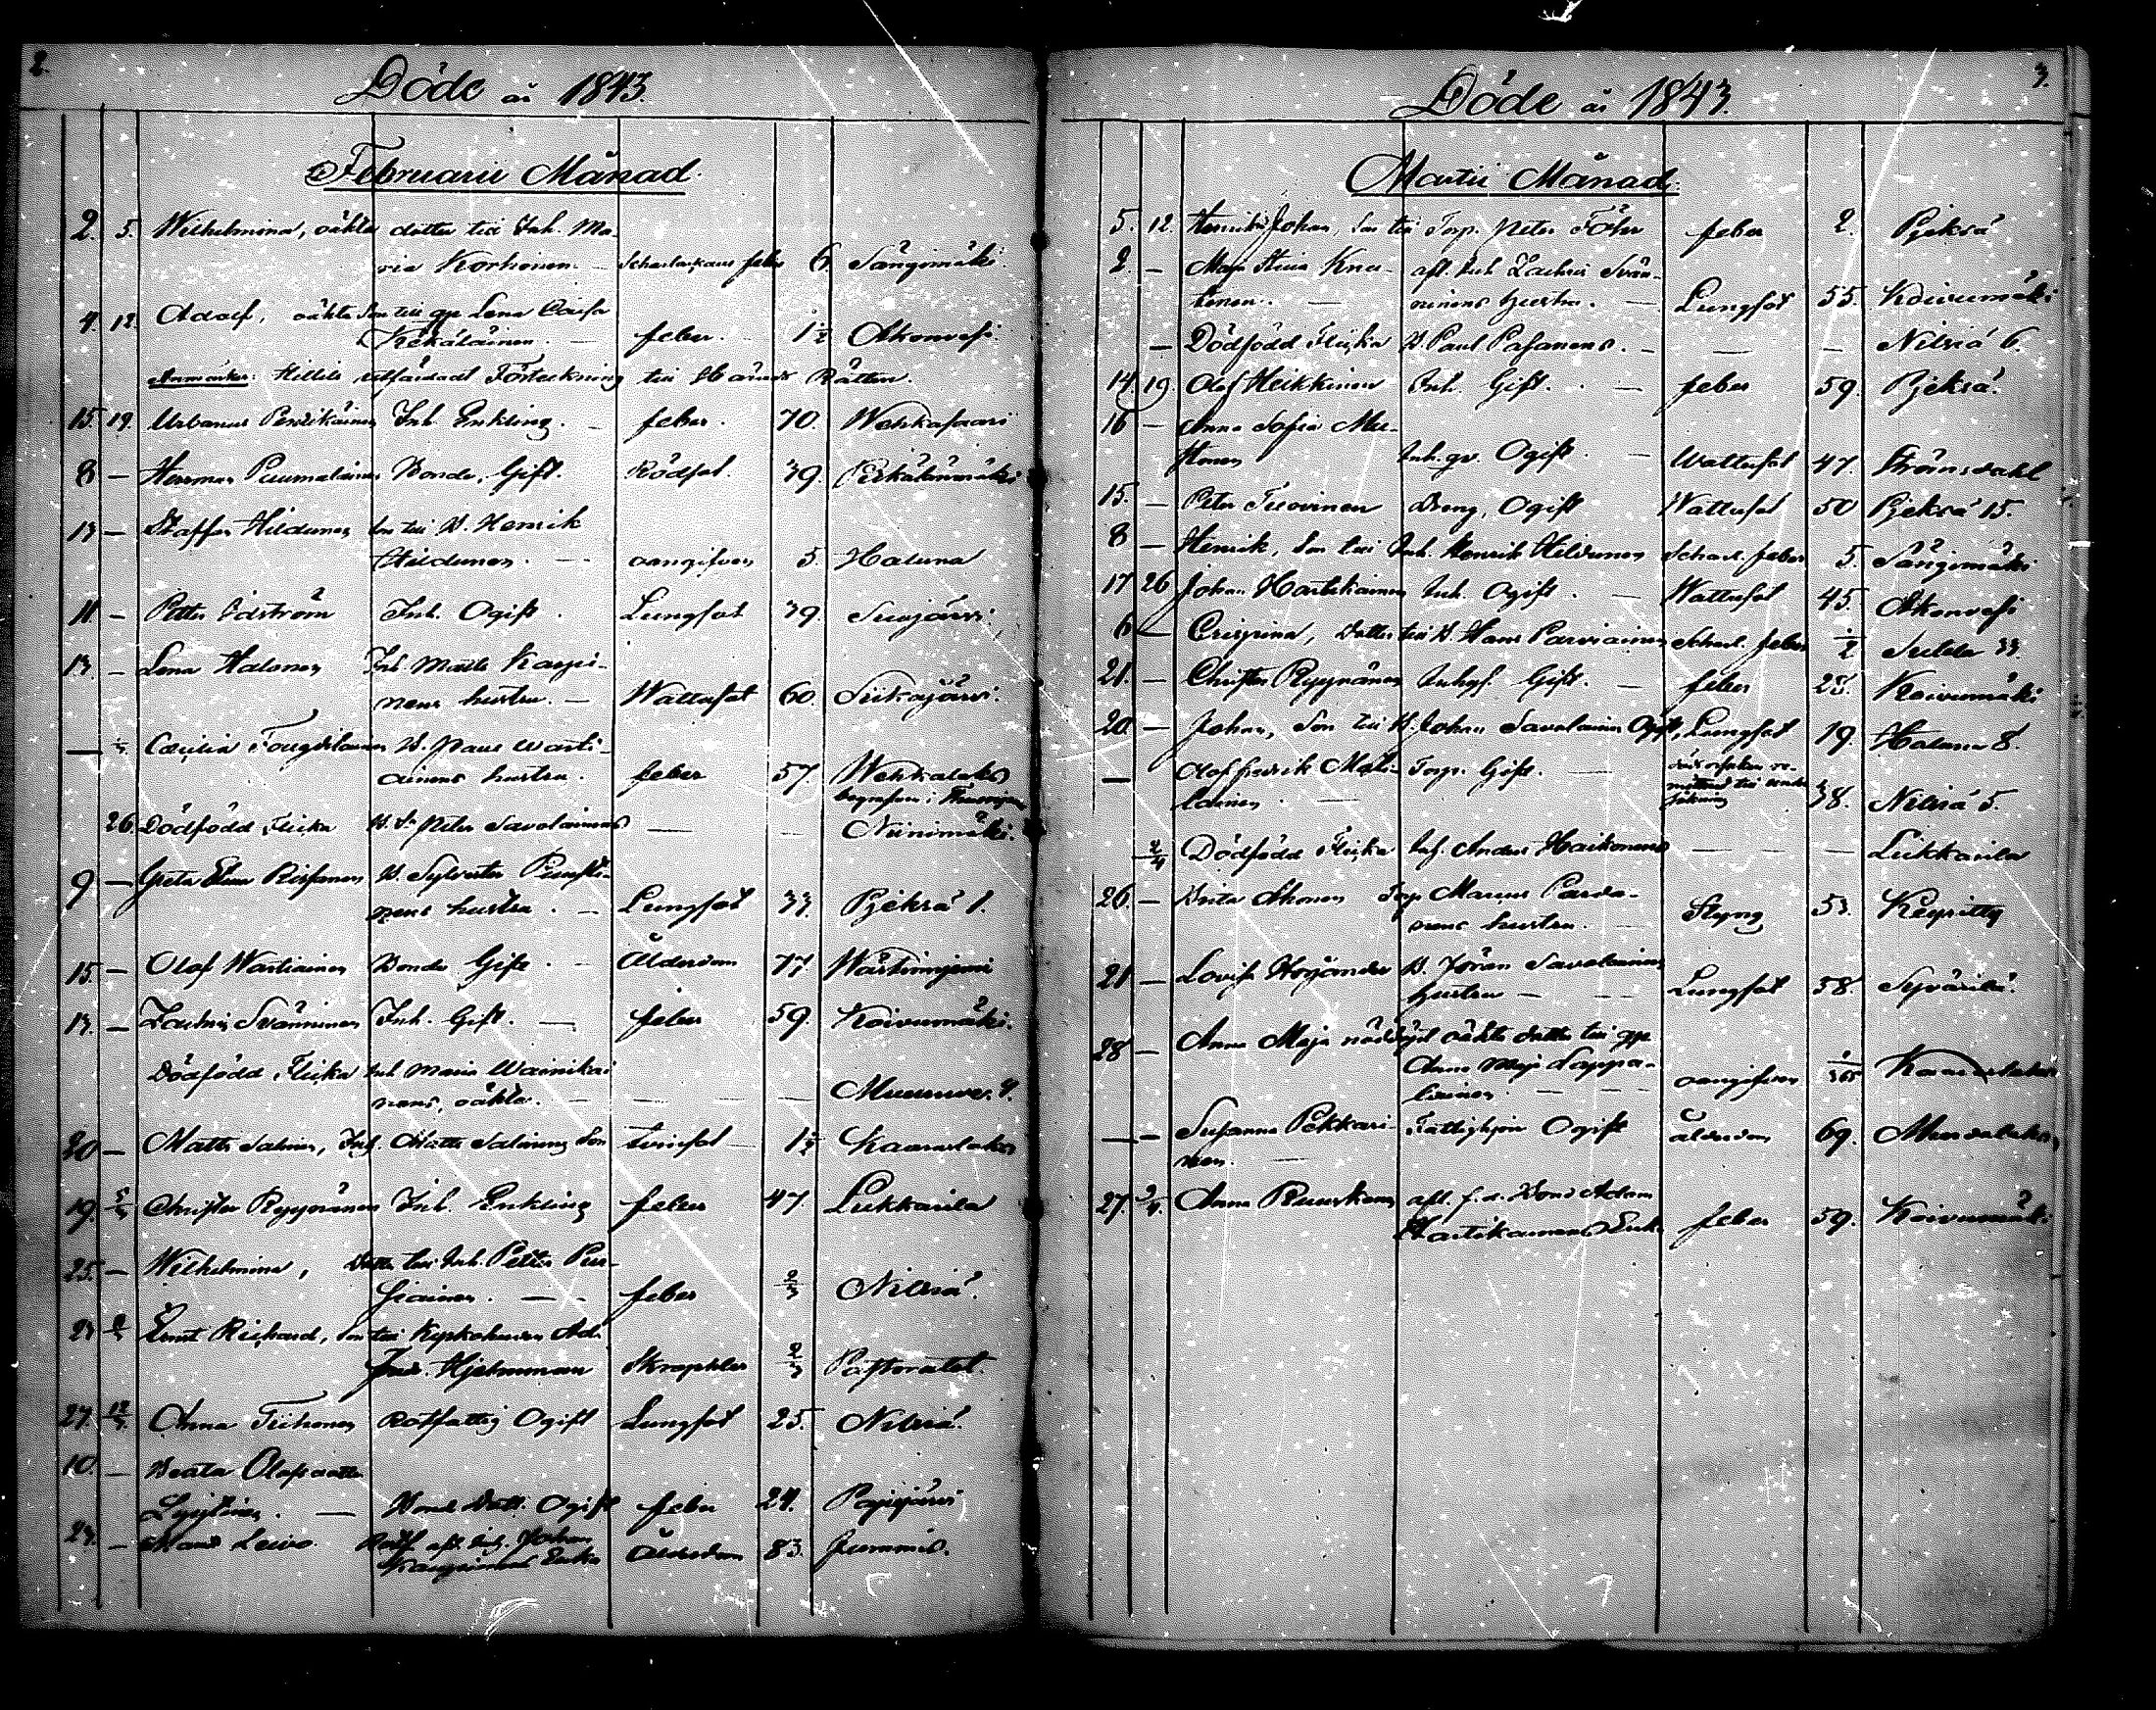 2.
Döde år 1843.
Februarii Månad.
2. 5. Wilhelmina, oäkta dotter till Inh. Ma-
ria Korhonen. — Scharlackans feber 6. Sängimäki.
4. 12. Adolf, oäkta Son till qp Lena Caisa
Kekäläinen. — feber. 1 1/2 Akonvesi.
Anmärkn: Hittils utfärdadt Förteckning till Härads Rätten.
15. 19. Urbanus Pentikäinen Inh. Enkling. — feber. 70. Wehkasaari
8 — Herman Puumalainen Bonde. Gift. Rödsot. 39. Pirkälänmäki
13 — Staffan Hildunen Son till B. Henrik
Hildunen. — oangifven 5. Haluna
11 — Petter Idström Inh. Ogift. Lungsot 39. Suojärvi.
13. — Lena Halonen Inh. Matts Karpi-
nens hustru. — Wattusot 60. Siikajärvi.
— Cæcilia Tougdilainen B. Paul Warti-
ainens hustru. feber 57. Wehkalaks
begrafven i
26. Dödfödd Flicka B. S. Peter Savolainens — — Niinimäki.
9 — Greta Elina Rissanen B. Sylvester Pursti-
nens hustru. — Lungsot 33. Pjeksä 1.
15. — Olof Wartiainen Bonde Gift. — Ålderdom 77 Wärttinniemi
13. — Zachris Svänninen Inh. Gift. — feber 59. Koivumäki.
Dödfödd Flicka Inh. Maria Wainikai
nens, oäkta. — — — Muuruve. 4.
20 — Matts Salmin, Inh. Matts Salminens Son 1 1/2 Kaaraslaks
19. 5/3 Christer Ryynänen Inh. Enkling feber 47. Lukkarila
25. — Wilhelmina, Dotter till Inh. Petter Pur-
siainen. — — feber 2/3 Nilsiä.
23 Ernst Richard, Son till Kyrkoherden Ad.
Fred. Hjelmman Skrophler 2/3 Pastoratet.
27. 12/3 Anna Tiihonen Rotfattig Ogift Lungsot 25. Nilsiä.
10. — Beata Olofsdotter
— Bonde Dott. Ogift feber 24. Pajujärvi
23. — Leivo. Rotf. afl. Inh. Johan
Enka Ålderdom 83. Jummis.
3.
Döde år 1843.
Martii Månad.
5. 12. Henrik Johan, Son till Torp. Peter Föhr feber 2. Pjeksä
2. — Maja Stina Knu- afl. Inh. Zachris Svän-
tinen. — ninens hustru. — Lungsot 55. Koivumäki
— Dödfödd Flicka B. Paul Pasanens. — — — Nilsiä 6.
14. 19. Olof Heikkinen Inh. Gift. — feber 59. Pjeksä.
16 — Anna Sofia Mu-
stonen Inh. qv. Ogift. — Wattusot 47. Strömsdahl
15. — Peter Tuovinen Dreng, Ogift Wattusot 50 Pjeksä 15.
8 — Henrik, Son till Inh. Henrik Hildunen Scharl. feber 5. Sängimäki
17 26 Johan Hartikainen Inh. Ogift. — Wattusot 45. Akonvesi
6 — Crispina, Dotter till B. Hans Parviainen Scharl. feber 1/2 Sutela 33.
21. — Christer Ryynänen Inhys. Gift. — feber 25. Koivumäki
20 — Johan, Son till B. Johan Savolainen Ogift, Lungsot 19. Haluna 8.
— Olof Fredrik Mati- Torp. Gift. —
lainen. — 38. Nilsiä 5.
2/4 Dödfödd Flicka Inh. Anders Haikonens — — — Lukkarila
26. — Brita Ahonen Torp. Marcus Parda-
nens hustru. — Styng 53. Keyritty
21 — Lovisa Hoyander B. Jöran Savolainens
hustru — — Lungsot 58. Syvärilä.
28 — Anna Maja nöddöpt oäkta dotter till qp
Anna Maja Lappa-
lainen. — — oangifven 1/365 Kaaraslaks
— — Susanna Pekkari- Fattighjon Ogift ålderdom 69. Murtolaks
nen. —
27. 9/4. Anna Ruuskanen afl. f. d. Bond Adam
Hartikainens Enka feber 59. Koivumäki